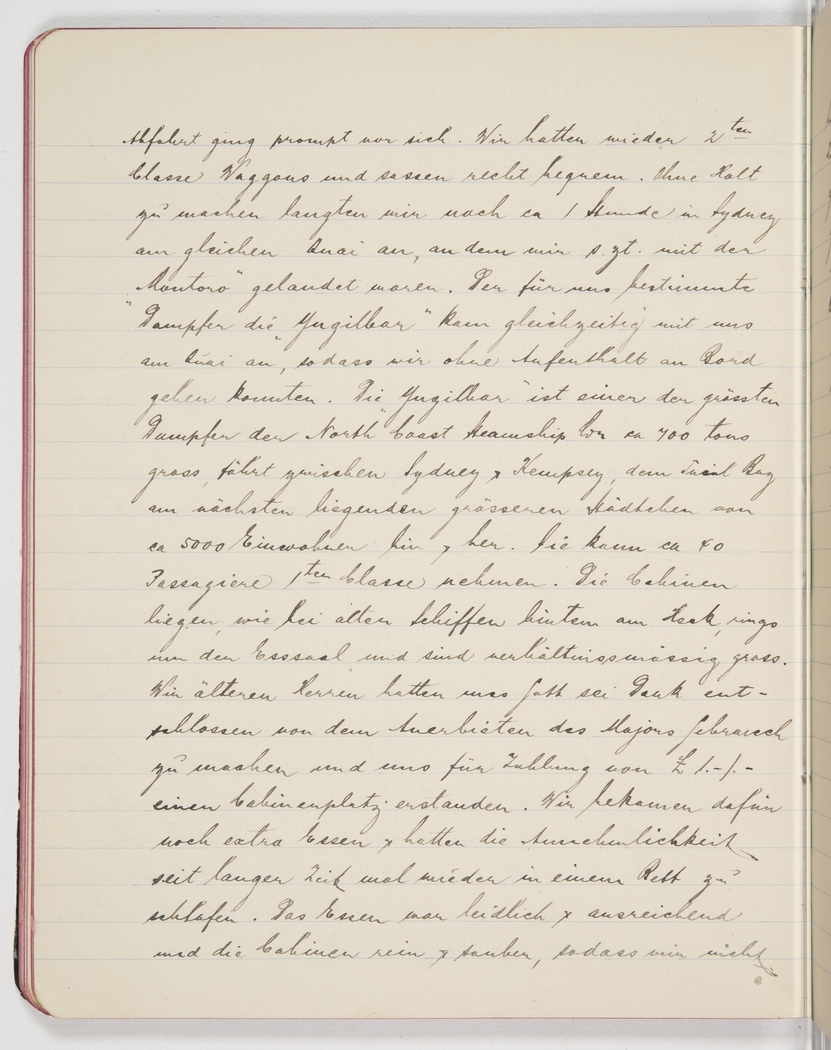 Abfahrt ging prompt vor sich. Wir hatten wieder 2ten
Classe Waggons und sassen recht bequem. Ohne Halt
zu machen langten wir nach ca 1 Stunde in Sydney
am gleichen Quai an, an dem wir s. zt. mit der
"Montoro" gelandet waren. Der für uns bestimmte
Dampfer die "Yugilbar" kam gleichzeitig mit uns
am Quai an, sodass wir ohne Aufenthalt an Bord
gehen konnten. Die "Yugilbar" ist einer der grössten
Dampfer der North Coast Steamship Coy ca 700 tons
gross, fährt zwischen Sydney & Kempsey, dem Trial Bay
am nächsten liegenden grösseren Städtchen von
ca 5000 Einwohner hin & her. Sie kann ca 40
Passagiere 1ten Classe nehmen. Die Cabinen
liegen, wie bei alten Schiffen hinten am Heck, rings
um den Esssaal und sind verhältnissmässig gross.
Wir älteren Herren hatten uns Gott sei Dank ent-
schlossen von dem Anerbieten des Majors Gebrauch
zu machen und uns für Zahlung von £ 1.-/.-
einen Cabinenplatz erstanden. Wir bekamen dafür
noch extra Essen & hatten die Annehmlichkeit
seit langer Zeit mal wieder in einem Bett zu
schlafen. Das Essen war leidlich & ausreichend
und die Cabinen rein & sauber, sodass wir nicht